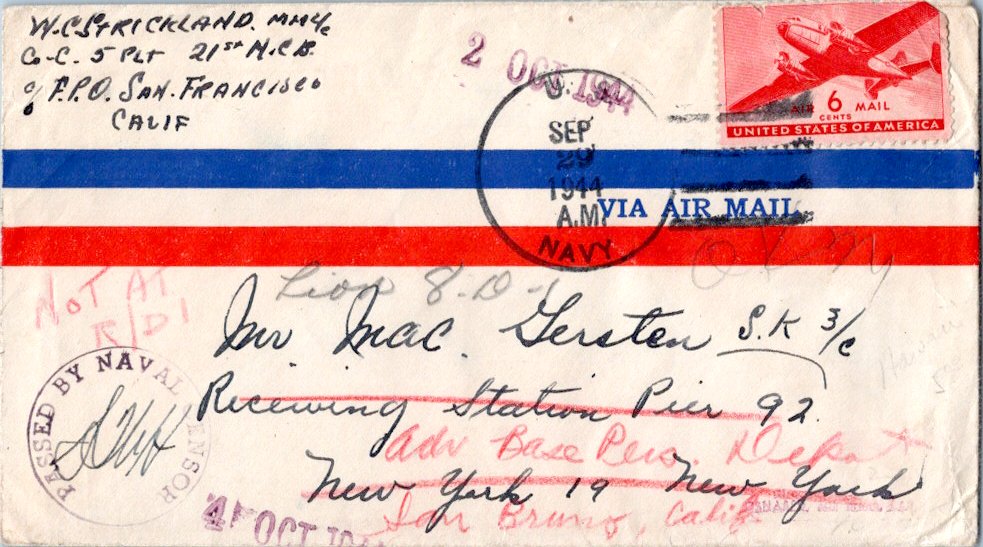 W.C STRICKLAND. MM2/c
Co-C. 5 PLT 21ST N.C.B.
c/o F.P.O. SAN. FRANCISCO
CALIF
2 OCT 1944
U.S.
SEP
29
1944
A.M.
NAVY
AIR 6 MAIL
CENTS
UNITED STATES OF AMERICA
VIA AIR MAIL
OK
NOT AT
R/D 1
Lion 8-D-1
Mr Mac. Gersten S.K 3/c
Receiving Station Pier 92.
Adv Base Pers. Depot
New York 19 New York
San Bruno, Calif
PASSED BY NAVAL CENSOR
4 OCT 1944